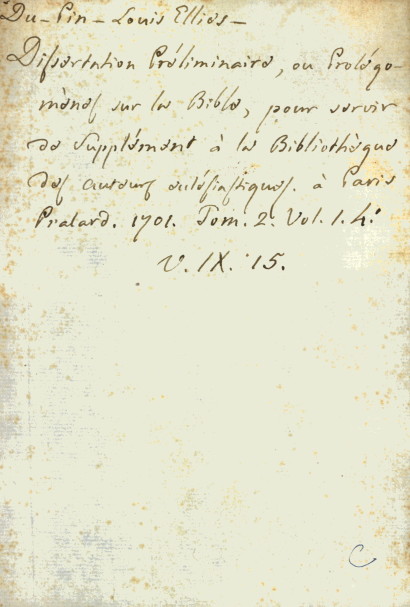 Du-Pin-Louis Ellies-
Dissertation Préliminaire, ou Prolégo-
mènes sur la Bible, pour servir
de Supplément à la Bibliothèque
des auteurs eclésiastiques. à Paris
Pralard. 1701. Tom. 2. Vol. 1. 4.º
V. IX. 15.
C